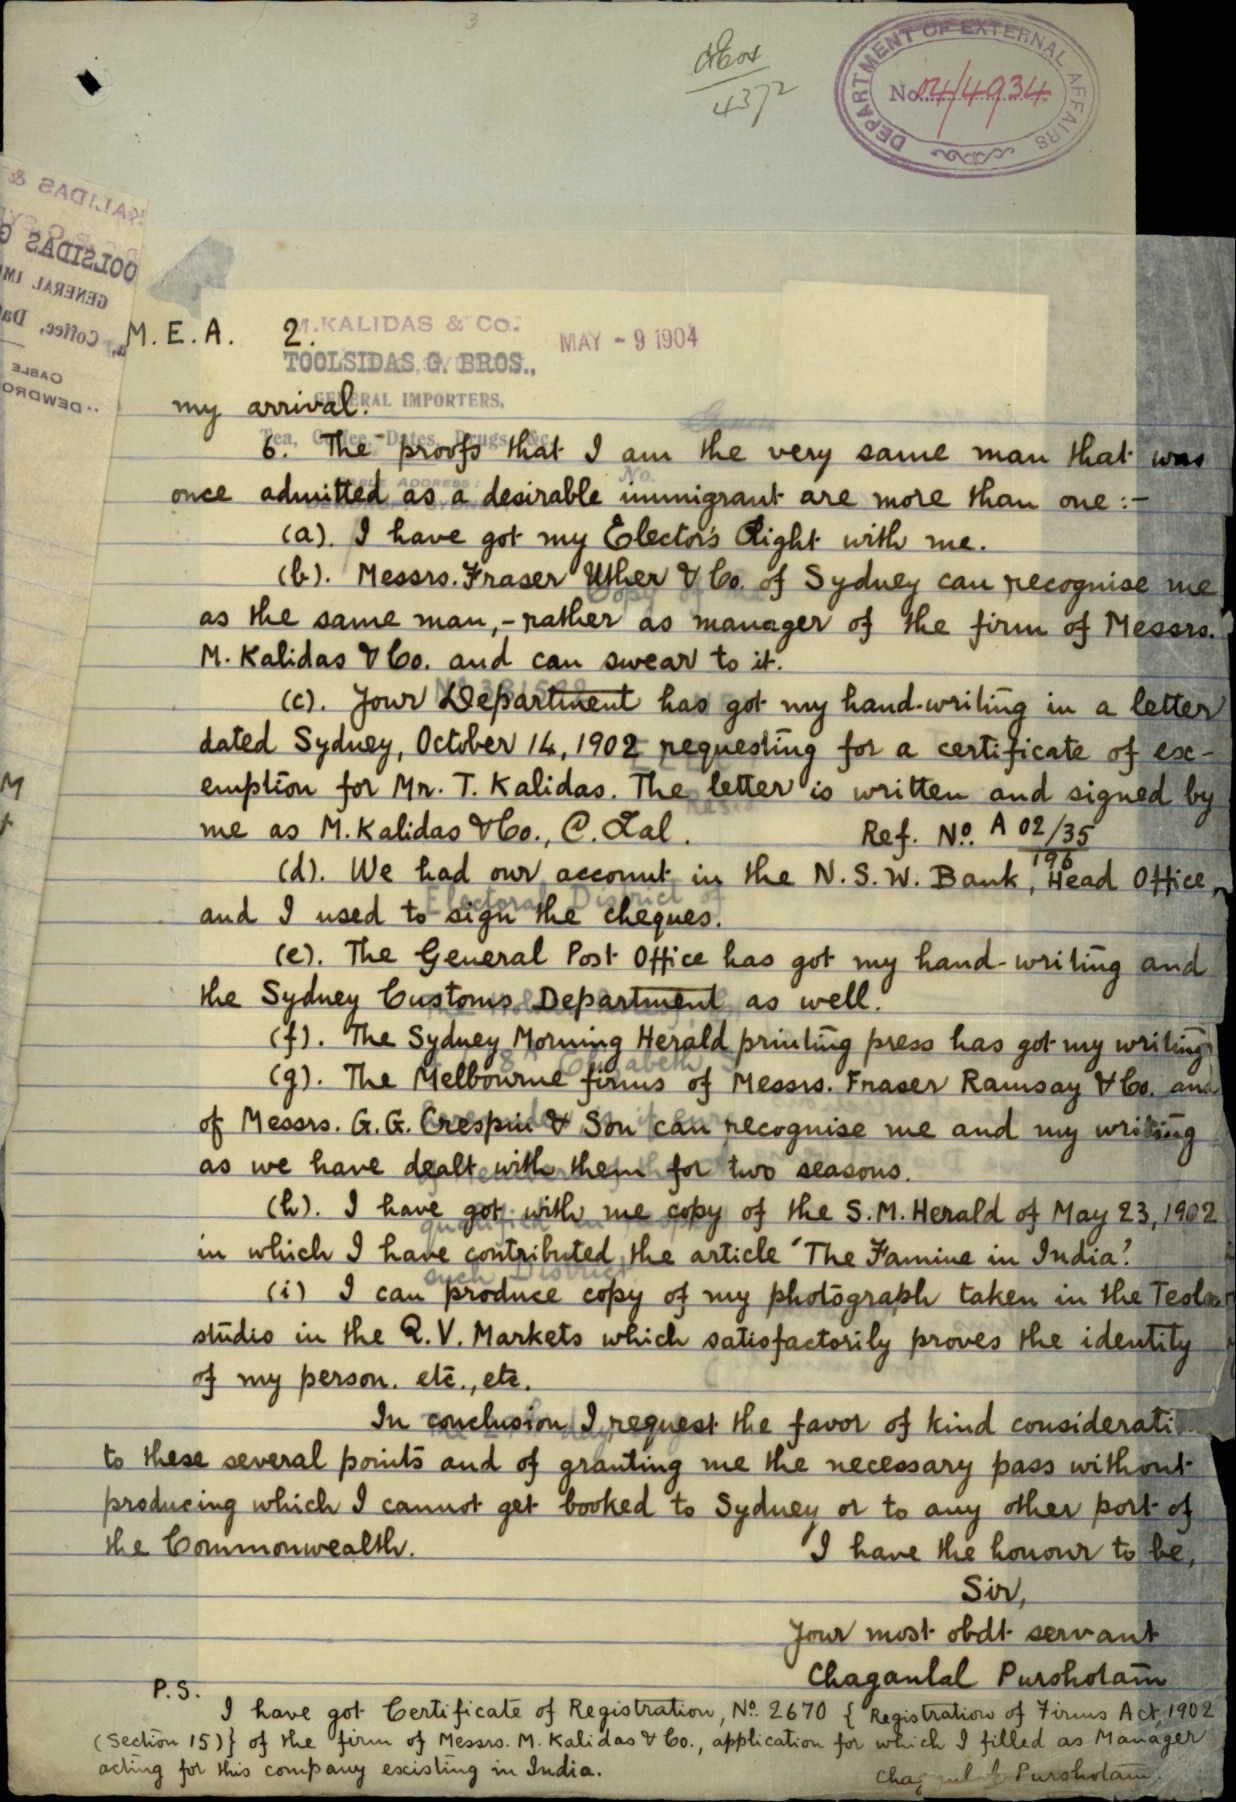 3
4372
DEPARTMENT OF EXTERNAL AFFAIRS
No. 04/4934
KALIDAS &
OOLSIDAS G
GENERAL IM
Coffee, Da
CABLE
"DEWDRO
M. E. A. 2.
M. KALIDAS & CO.
MAY - 9 1904
TOOLSIDAS G. BROS.,
GENERAL IMPORTERS,
Tea, Coffee, Dates, Drugs, &c.
my arrival.
6. The proofs that I am the very same man that was
No.
once admitted as a desirable immigrant are more than one :-
(a). I have got my Elector's Right with me.
(b). Messrs. Fraser Uther & Co. of Sydney can recognise me
Copy of
as the same man, - rather as manager of the firm of Messrs.
M. Kalidas & Co. and can swear to it.
(c). Your Department has got my hand-writing in a letter
dated Sydney, October 14, 1902 requesting for a certificate of ex-
emption for Mr. T. Kalidas. The letter is written and signed by
me as M. Kalidas & Co., C. Lal. Ref. No. A 02/35
196
(d). We had our account in the N. S. W. Bank, Head Office,
Electoral District of
and I used to sign the cheques.
(e). The General Post Office has got my hand-writing and
the Sydney Customs Department as well.
(f). The Sydney Morning Herald printing press has got my writing
Elizabeth
(g). The Melbourne firms of Messrs. Fraser Ramsay & Co. and
of Messrs. G. G. Crespin & Son can recognise me and my writing
as we have dealt with them for two seasons.
(h). I have got with me copy of the S. M. Herald of May 23, 1902
qualified
in which I have contributed the article 'The Famine in India'.
such District
(i) I can produce copy of my photograph taken in the Tesla
studio in the Q. V. Markets which satisfactorily proves the identity
of my person. etc., etc.
In conclusion I request the favor of kind considerati
to these several points and of granting me the necessary pass without
producing which I cannot get booked to Sydney or to any other port of
the Commonwealth. I have the honour to be,
Sir,
Your most obdt servant
Chaganlal Pursholam
P.S.
I have got Certificate of Registration, No. 2670 { Registration of Firms Act, 1902
(Section 15)} of the firm of Messrs. M. Kalidas & Co., application for which I filled as Manager
acting for this company existing in India.
Chaganlal Pursholam.